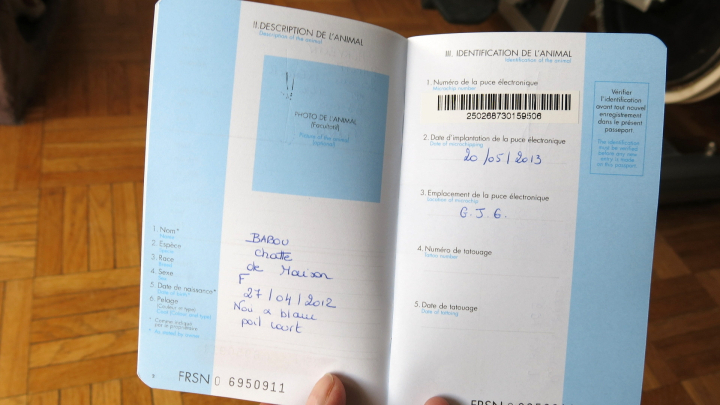 II. DESCRIPTION DE L'ANIMAL
Description of the animal
PHOTO DE L'ANIMAL
(Facultatif)
Picture of the animal
(optional)
1. Nom*
Name
2. Espèce
Species
3. Race
Breed
4. Sexe
Sex
5. Date de naissance*
Date of birth*
6. Pelage
(Couleur et type)
Coat (Colour and type)
* Comme indiqué
par le propriétaire
As stated by owner
BABOU
chatte
de Maison
F
27/04/2012
Noir & blanc
poil court
8
FRSN 0 6950911
III. IDENTIFICATION DE L'ANIMAL
Identification of the animal
1. Numéro de la puce électronique
Microchip number
250268730159506
2. Date d'implantation de la puce électronique
Date of microchipping
20/05/2013
3. Emplacement de la puce électronique
Location of microchip
G.J.G.
4. Numéro de tatouage
Tattoo number
5. Date de tatouage
Date of tattooing
Vérifier
l'identification
avant tout nouvel
enregistrement
dans le présent
passeport.
The identification
must be verified
before any new
entry is made
on this passport.
FRSN